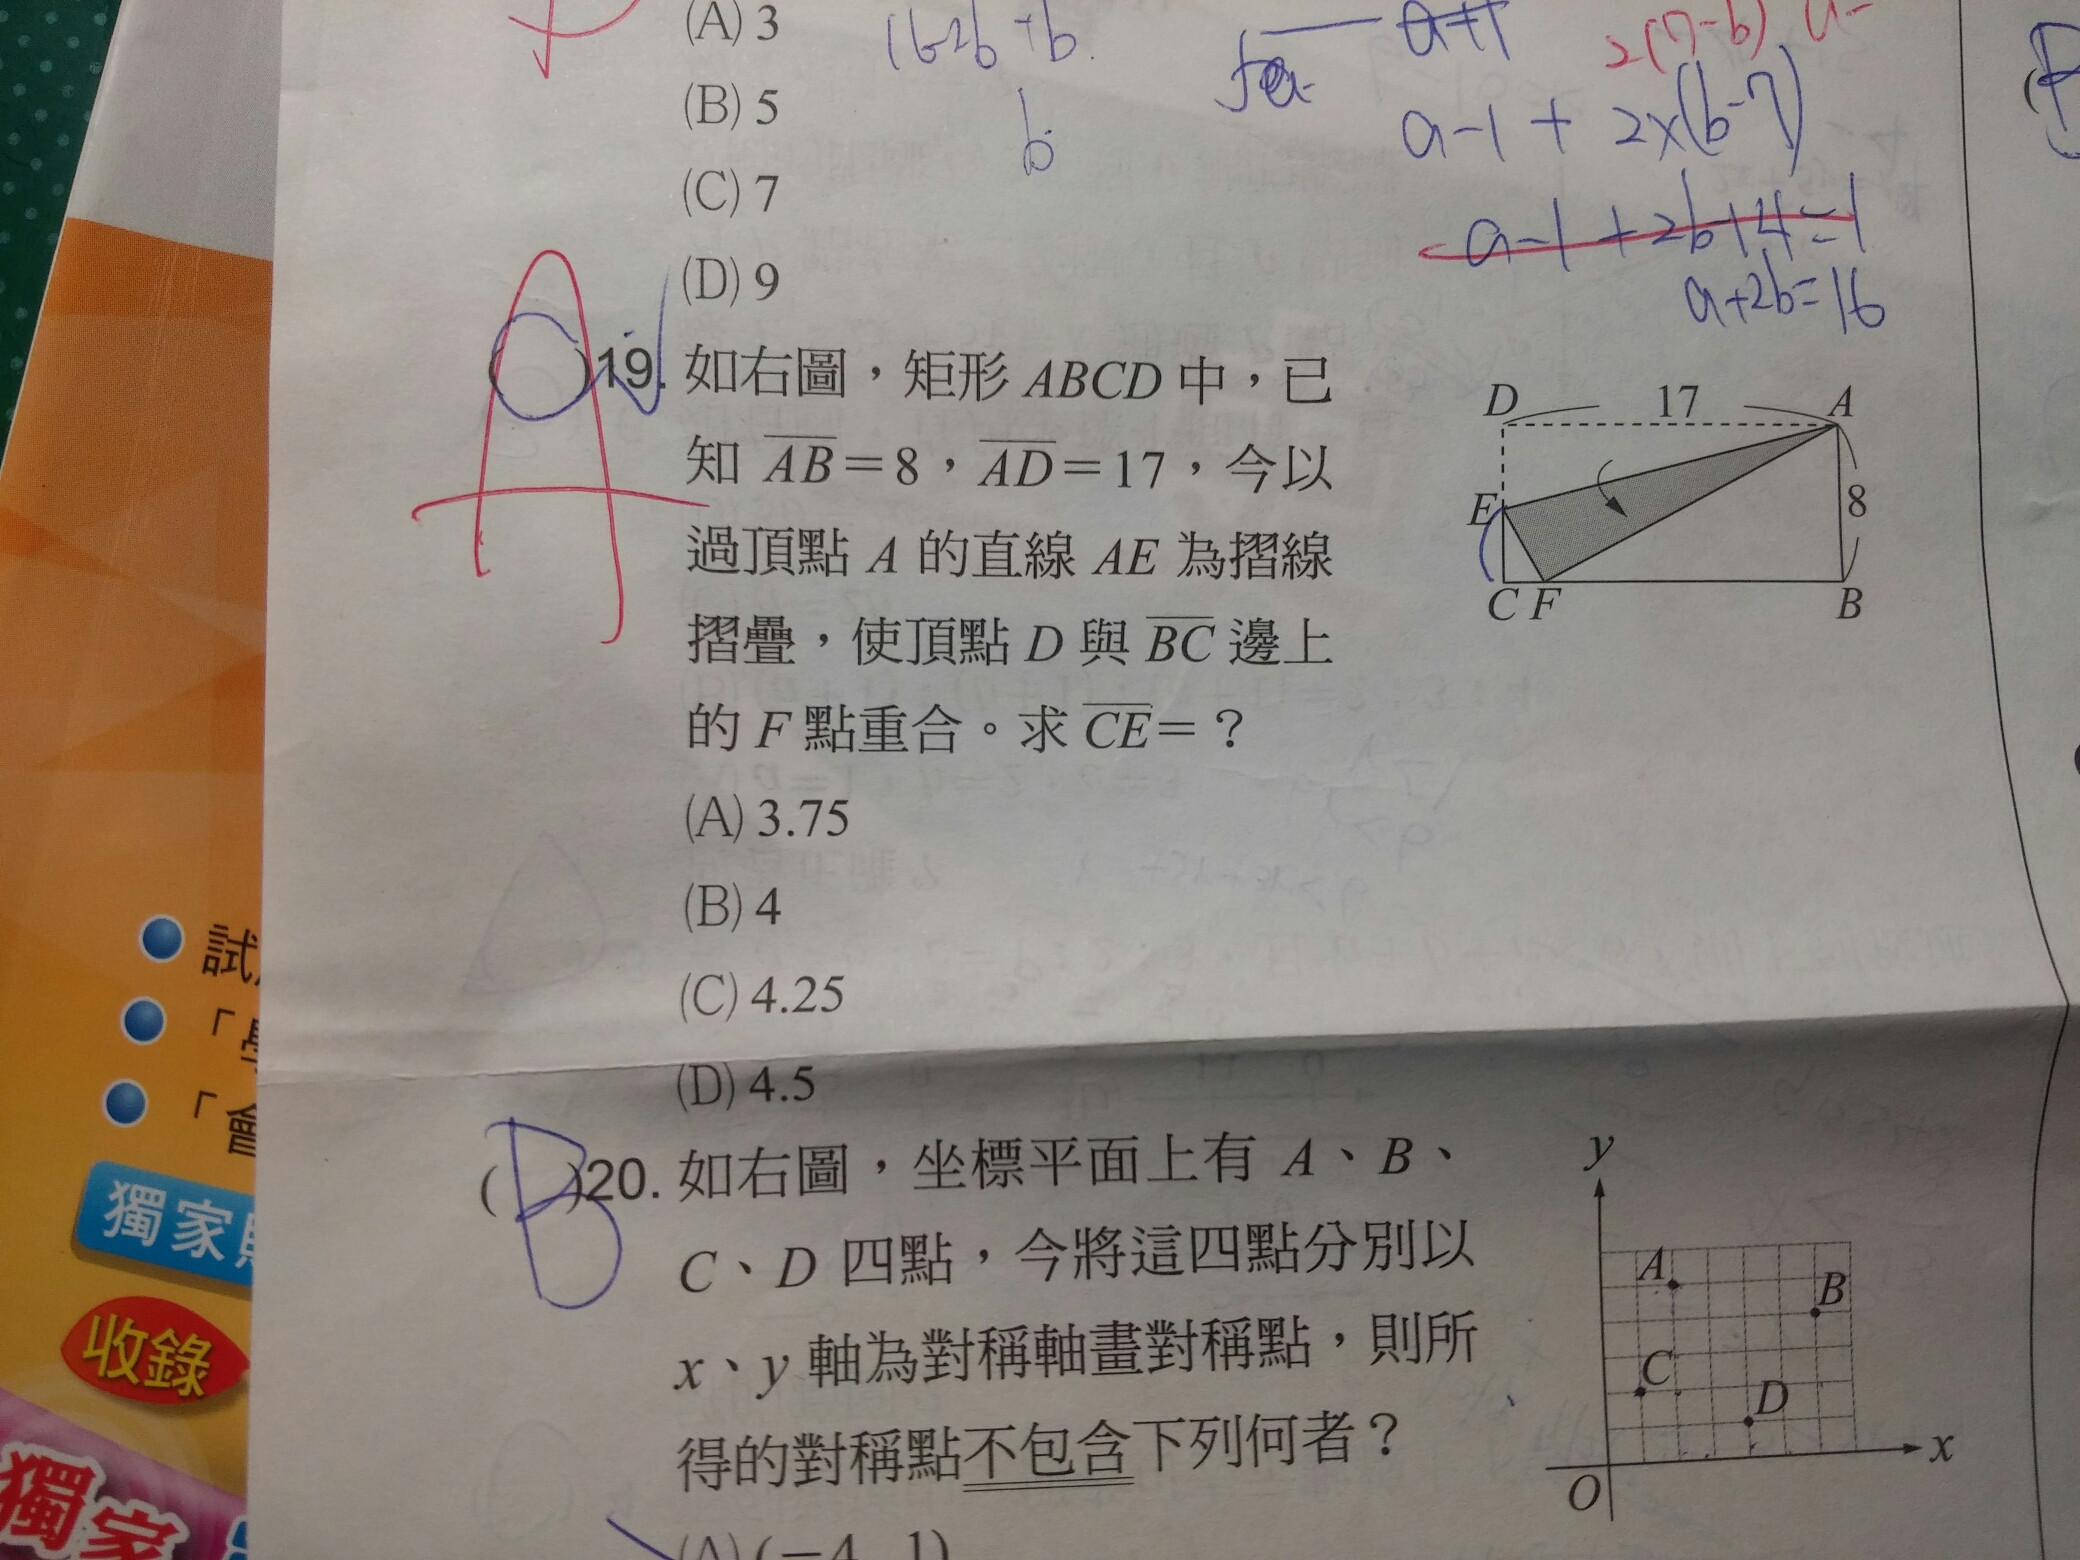 (A) 3
16-2b+b
b
(B) 5
a-1+2×(b-7)
2(7-b)
(C) 7
a-1+2b+4=1
(D) 9
a+2b=16
A
( )19. 如右圖，矩形 ABCD 中，已
知 AB=8，AD=17，今以
過頂點 A 的直線 AE 為摺線
摺疊，使頂點 D 與 BC 邊上
的 F 點重合。求 CE=？
D 17 A
E 8
C F B
(A) 3.75
(B) 4
(C) 4.25
(D) 4.5
(B)20. 如右圖，坐標平面上有 A、B、
C、D 四點，今將這四點分別以
x、y 軸為對稱軸畫對稱點，則所
得的對稱點不包含下列何者？
(A) (−4, 1)
y
A
B
C
D
O
x
試
「
「會
獨家
收錄
獨家